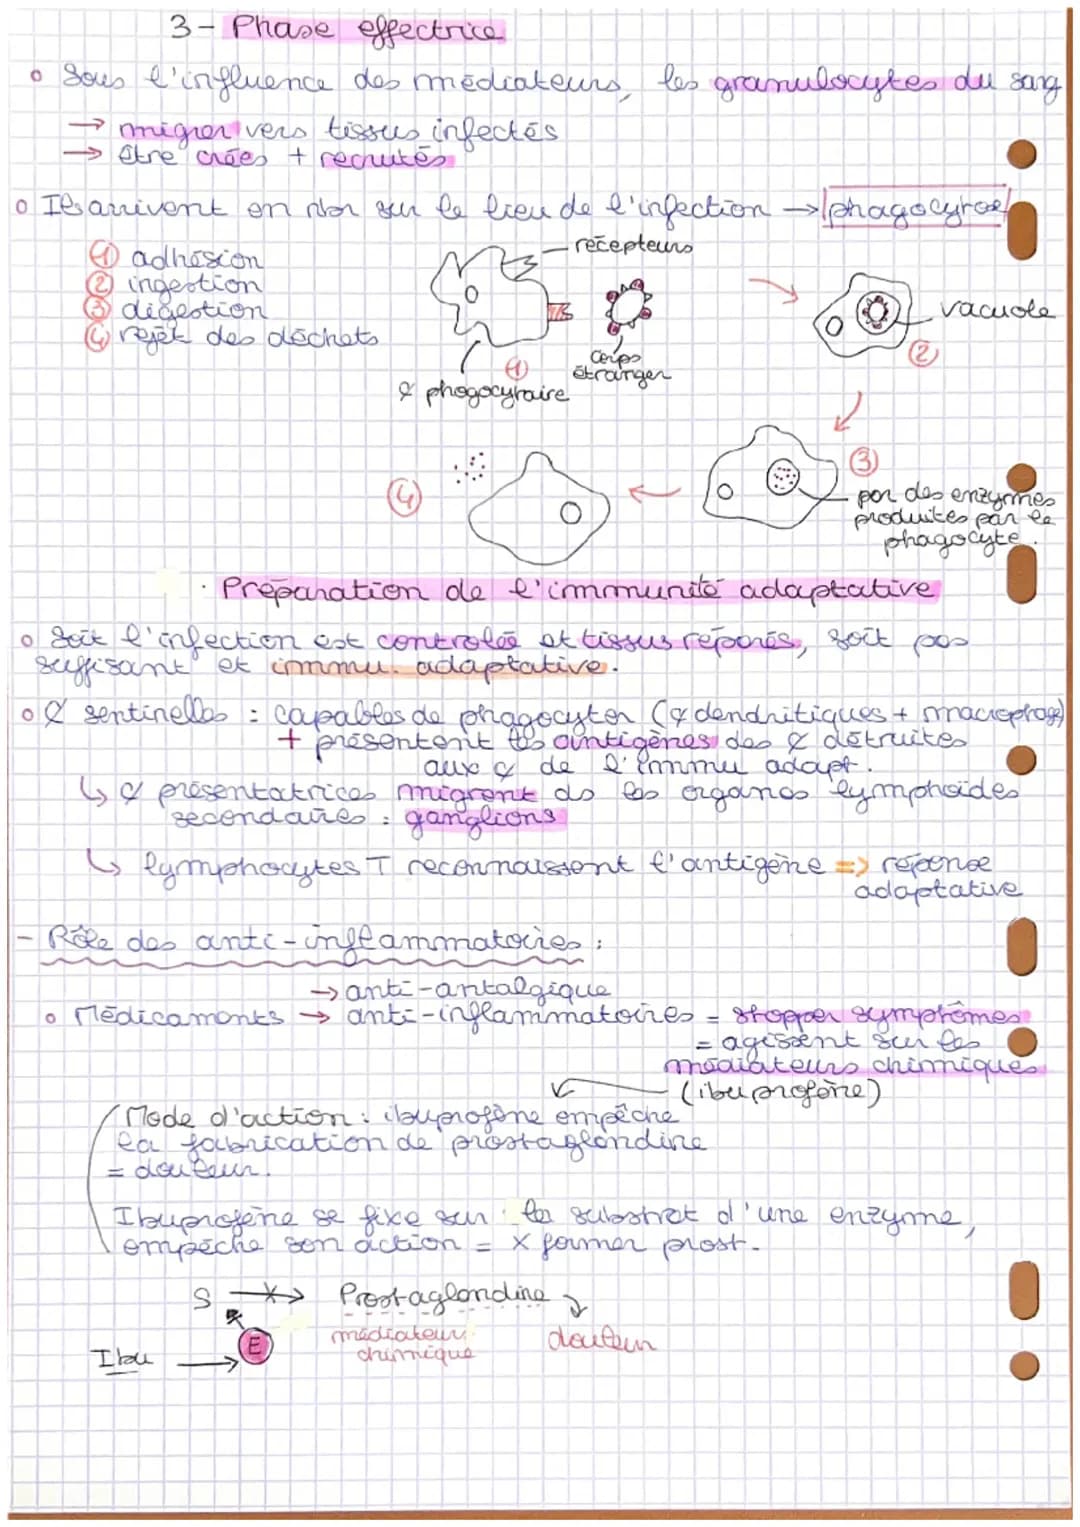 3- Phase effectrice
o Sous l'influence des médiateurs, les granulocytes du sang
→ migrer vers tissus infectés
→ être créés + recrutés
o Ils arrivent en nbr sur le lieu de l'infection → phagocytose
① adhésion
② ingestion
③ digestion
④ rejet des déchets
récepteurs
corps
étranger
①
phagocytaire
vacuole
②
③
par des enzymes
produites par le
phagocyte.
④
Préparation de l'immunité adaptative
o Soit l'infection est controlée et tissus réparés, soit pas
suffisant et immu. adaptative.
o ¢ sentinelles : capables de phagocyter (¢ dendritiques + macrophage)
+ présentent les antigènes des ¢ détruites
aux ¢ de l'immu adapt.
↳ ¢ présentatrices migrent ds les organes lymphoïdes
secondaires : ganglions
↳ lymphocytes T reconnaissent l'antigène => réponse
adaptative
- Rôle des anti-inflammatoires :
→ anti-antalgique
o Médicaments → anti-inflammatoires = stopper symptômes
= agissent sur les
médiateurs chimiques
(ibuprofène)
Mode d'action : ibuprofène empêche
la fabrication de prostaglandine
= douleur.
Ibuprofène se fixe sur le substrat d'une enzyme,
empêche son action = x former prost.
S → Prostaglandine
médiateur
chimique
douleur
E
Ibu →